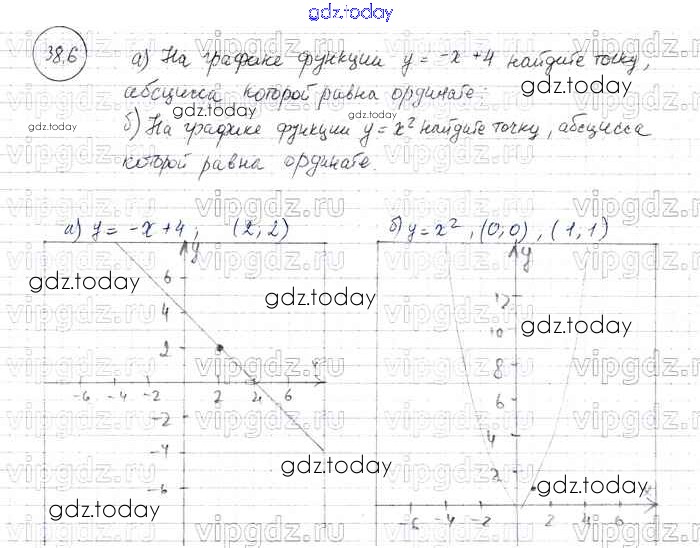 gdz.today
38.6
а) На графике функции y = -x + 4 найдите точку,
абсцисса которой равна ординате:
б) На графике функции y = x² найдите точку, абсцисса
которой равна ординате.
а) y = -x + 4; (2; 2)
б) y = x², (0; 0), (1; 1)
y
6
4
2
-6 -4 -2 2 4 6
-2
-4
-6
y
12
10
8
6
4
2
-6 -4 -2 2 4 6
gdz.today
gdz.today
gdz.today
gdz.today
gdz.today
gdz.today
gdz.today
gdz.today
gdz.today
vipgdz.ru